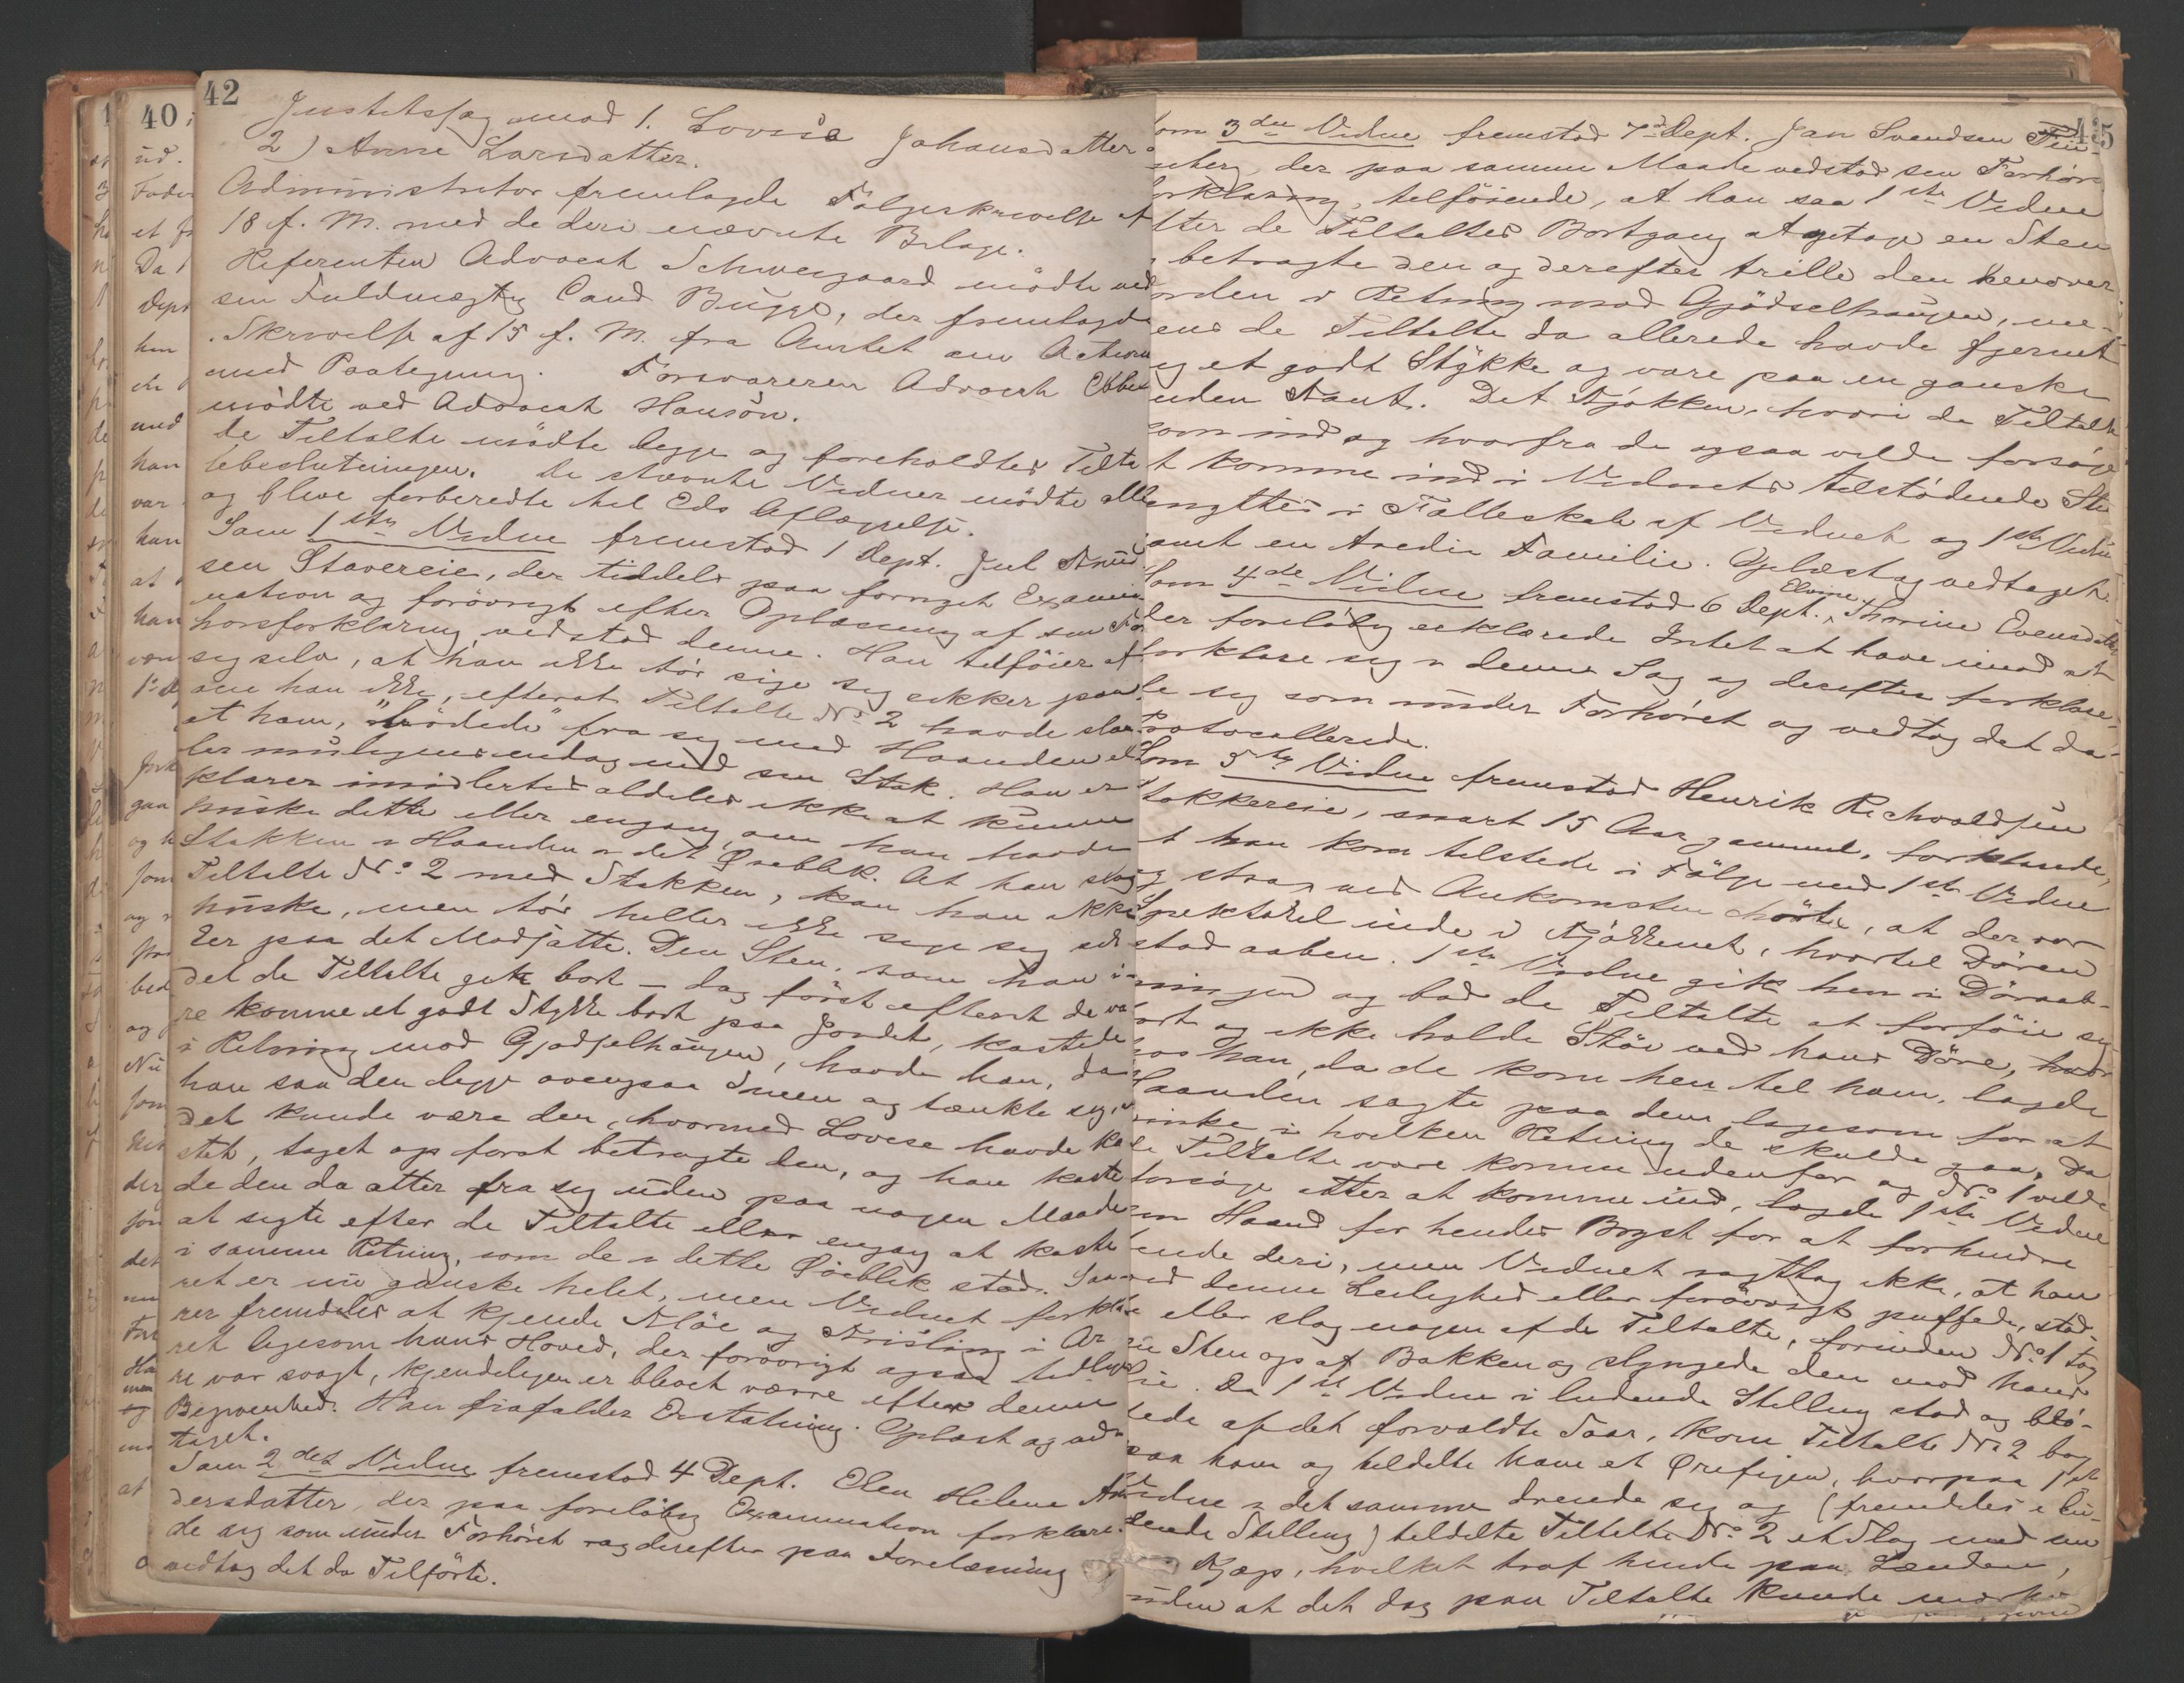 42
Justitssag mod 1. Lovise Johansdatter
2) Anne Larsdatter.
Administrator fremlagde Følgeskrivelse af
18 f. M. med de deri nævnte Bilage.
Referenten Advocat Schweigaard mödte ved
sin Fuldmægtig Cand Bugge, der fremlagde
Skrivelse af 15 f. M. fra Amtet om Action
med Paategning. Forsvareren Advocat Ebbe
mödte ved Advocat Hansön.
De Tiltalte mödte begge og foreholdtes Tilta
lebeslutningen. De stevnte Vidner mödte alle
og bleve forberedte til Eds Aflæggelse.
Som 1ste Vidne fremstod 1 Dept. Jul Knud
sen Stavereie, der tildels paa fornyet Exami
nation og forövrigt efter Oplæsning af sin For
horsforklaring, vedstod denne. Han tilföier af
sig selv, at han ikke tör sige sig sikker paa
om han ikke, efterat Tiltalte No 2 havde slaa
et ham, "stödede" fra sig med Haanden el
ler muligens endog med sin Stok. Han er
klærer imidlertid aldeles ikke at kunne
huske dette eller engang om han havde
Stokken i Haanden i det Øieblik. At han slog
Tiltalte No 2 med Stokken, kan han ikke
huske, men tör heller ikke sige sig sik
ker paa det Modsatte. Den Sten, som han i
det de Tiltalte gik bort – dog först efterat de va
re komne et godt Stykke bort paa Jordet, kastede
i Retning mod Gjödselhaugen, havde han, da
han saa den ligge ovenpaa Sneen og tænkte sig, at
det kunde være den, hvormed Lovise havde ka
stet, taget op forst betragte den, og han kaste
de den da atter fra sig uden paa nogen Maade
at sigte efter de Tiltalte eller engang at kaste
i samme Retning, som de i dette Øieblik stod. Saa
ret er nu ganske helet, men Vidnet forkla
rer fremdeles at kjende Klöe og Krisling i Ar
ret ligesom hans Hoved, der forövrigt ogsaa tidlige
re var svagt, kjendeligen er blevet værre efter denne
Begivenhed. Han frafalder Erstatning. Oplæst og ved
taget.
Som 2det Vidne fremstod 4 Dept. Elen Helene An
dersdatter, der paa foreløbig Examination forklare
de sig som under Forhöret og derefter paa Forelæsning
vedtog det da Tilförte.
45
Som 3die Vidne fremstod 7de Dept. Jan Svendsen
der paa samme Maade vedstod sin Forhörs
forklaring, tilföiende, at han saa 1ste Vidne
efter de Tiltaltes Bortgang at optage en Sten
betragte den og derefter trille den henover
Jorden i Retning mod Gjödselhaugen, me-
dens de Tiltalte da allerede havde fjernet
sig et godt Stykke og vare paa en ganske
anden Kant. Det Kjökken, hvori de Tiltalte
kom ind og hvorfra de ogsaa vilde forsöge
at komme ind i Vidnets tilstödende Stu
benyttes i Fælleskab af Vidnet og 1ste Vidne
samt en tredie Familie. Oplæst og vedtaget.
Som 4de Vidne fremstod 6 Dept. Elvine Thorine Evensdatter
der foreløbig erklærede Intet at have imod at
forklare sig i denne Sag og derefter forklare
de sig som under Forhöret og vedtog det da
Protocollerede.
Som 5te Vidne fremstod Henrik Richvoldsen
Stokkereie, snart 15 Aar gammel, forklarede,
at han kom tilstede i Fölge med 1ste Vidne
og strax ved Ankomsten hörte, at der var
Spektakel inde i Kjökkenet, hvortil Dören
stod aaben. 1ste Vidne gik hen i Döraab-
ningen og bad de Tiltalte at forföie sig
bort og ikke holde Stöi ved hans Döre, hvor
hos han, da de kom hen til ham, lagde
Haanden sagte paa dem ligesom for at
vinke i hvilken Retning de skulde gaa. Da
de Tiltalte vare komne udenfor og No 1 vilde
forsöge atter at komme ind, lagde 1ste Vidne
sin Haand for hendes Bryst for at forhindre
hende deri, men Vidnet iagttog ikke, at han
ved denne Leilighed eller forövrigt puffede, stöd-
te eller slog nogen af de Tiltalte, forinden No 1 tog
en Sten op af Bakken og slyngede den mod hans
Da 1ste Vidne i ludende Stilling stod og blö-
dede af det forvoldte Saar, kom Tiltalte No 2 bag
paa ham og tildelte ham et Ørefigen, hvorpaa 1ste
Vidne i det samme dreiede sig og (fremdeles i lu-
dende Stilling) tildelte Tiltalte No 2 et Slag med en
Kjæp, hvilket traf hende paa Lænden,
uden at det dog paa Tiltalte kunde mærkes